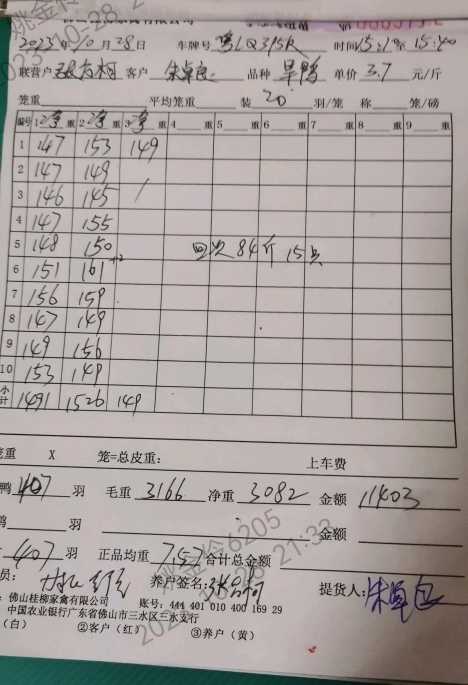 2023年10月28日 车牌号 时间15:1 至 15:40
联营户 客户 朱卓良 品种 旱鸭 单价 3.7 元/斤
笼重 平均笼重 装 20 羽/笼 称 笼/磅
编号 1 重 2 重 3 重 4 重 5 重 6 重 7 重 8 重 9 重
1 147 153 149
2 147 149
3 146 145
4 147 155
5 148 150 四次84斤 15只
6 151 161 +2
7 156 159
8 147 149
9 149 156
10 153 149
小计 1491 1526 149
笼重 X 笼=总皮重: 上车费
鸭 407 羽 毛重 3166 净重 3082 金额 11403
羽 金额
407 羽 正品均重 7.57 合计总金额
员: 养户签名: 提货人:
佛山桂柳家禽有限公司 账号: 444 401 010 400 169 29
中国农业银行广东省佛山市三水区三水支行
(白) ②客户(红) ③养户(黄)